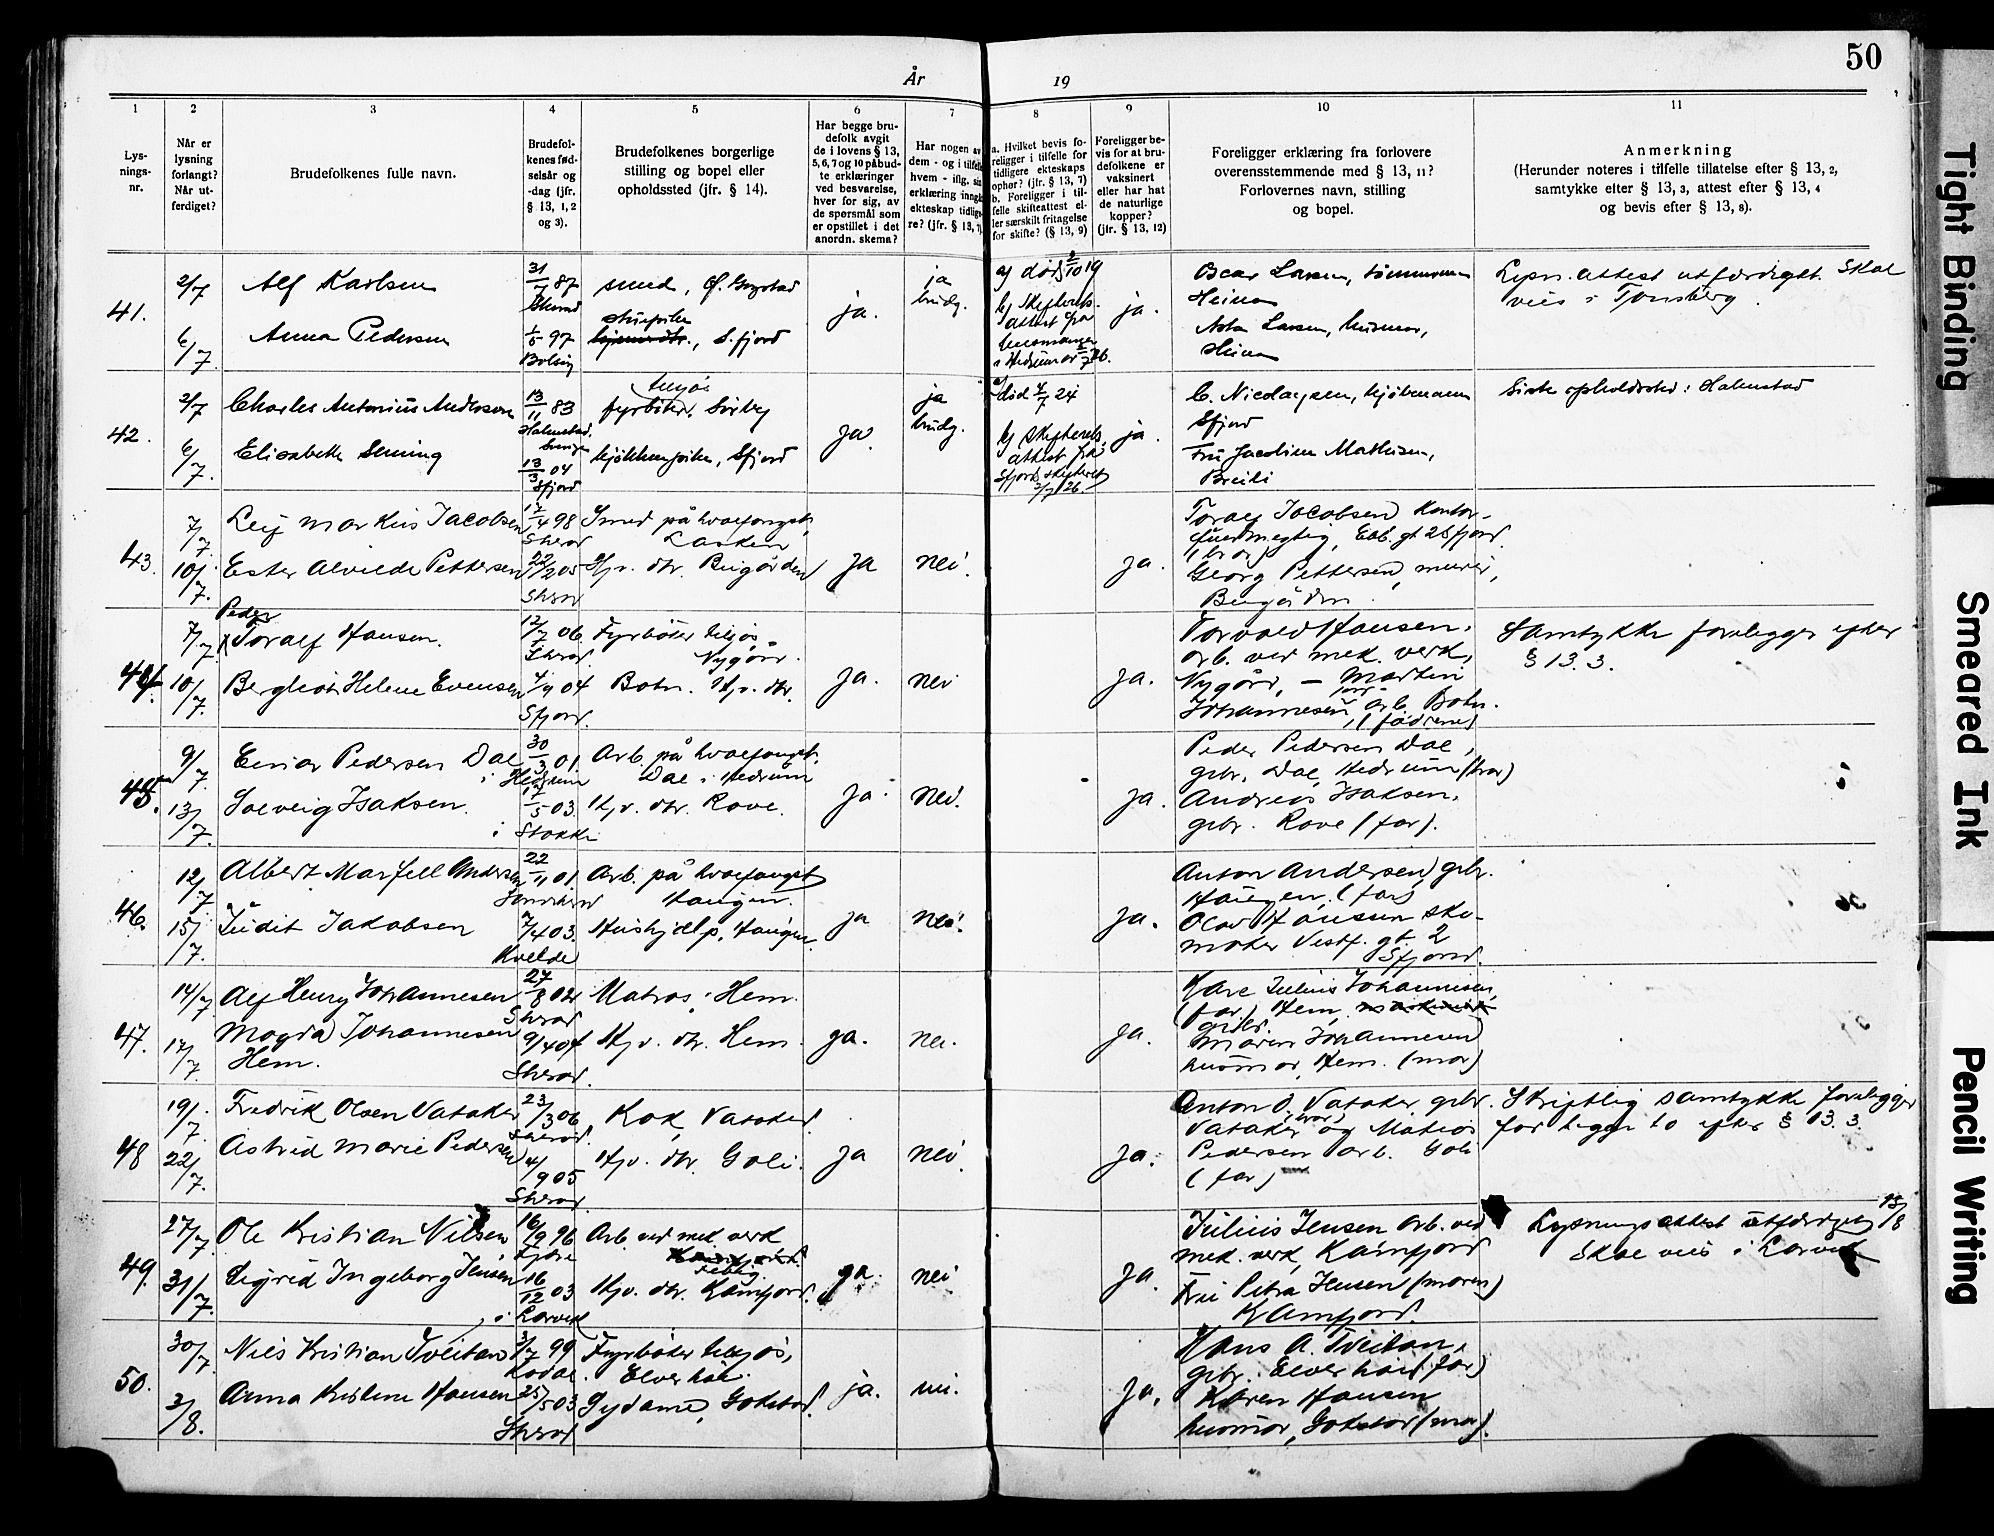 50
År 19
1 2 3 4 5 6 7 8 9 10 11
Lys-
nings-
nr.
Når er
lysning
forlangt?
Når ut-
ferdiget?
Brudefolkenes fulle navn.
Brudefol-
kenes fød-
selsår og
-dag (jfr.
§ 13, 1, 2
og 3).
Brudefolkenes borgerlige
stilling og bopel eller
opholdssted (jfr. § 14).
Har begge bru-
defolk avgit
de i lovens § 13,
5, 6, 7 og 10 påbud-
te erklæringer
ved besvarelse,
hver for sig, av
de spørsmål som
er opstillet i det
anordn. skema?
Har nogen av
dem - og i tilfelle
hvem - iflg. sin
erklæring inngått
ekteskap tidlige-
re? (jfr. § 13, 7)
a. Hvilket bevis fo-
religger i tilfelle for
tidligere ekteskaps
ophør? (jfr. § 13, 7)
b. Foreligger i til-
felle skifteattest el-
ler særskilt fritagelse
for skifte? (§ 13, 9)
Foreligger be-
vis for at bru-
defolkene er
vaksinert
eller har hat
de naturlige
kopper?
(jfr. § 13, 12)
Foreligger erklæring fra forlovere
overensstemmende med § 13, 11?
Forlovernes navn, stilling
og bopel.
Anmerkning
(Herunder noteres i tilfelle tillatelse efter § 13, 2,
samtykke efter § 13, 3, attest efter § 13, 4
og bevis efter § 13, 8).
41.
2/7
6/7
Alf Karlsen
Anna Pedersen
31/7 87
1/5 97
smed,
S.fjord
ja.
ja
brudg.
a) død 2/10 19
b) Skifterets-
attest fra
ja.
Oscar Larsen, tømmermann
Heimen
Asta Larsen, husmor,
Heimen
Lysn. attest utferdiget. Skal
vies i Tønsberg.
42.
2/7
6/7
Charles Antonius Anderson
Elisabeth Sening
13/11 83
Halmstad,
Sverige
13/3 04
Sfjord
tilsjøs
fyrbøter,
kjøkkenpike, Sfjord
ja
ja
brudg.
a) død 4/7 24
b) Skifterets-
attest fra
Sfjord skifteret
2/7 26.
ja.
C. Nicolaysen, kjøbmann
Sfjord
Fru Jacobine Mathisen,
Breili
Siste opholdssted: Halmstad
43.
7/7
10/7.
Leif Markus Jacobsen
Ester Alvilde Pettersen
17/4 98
Sherod
22/2 05
Sherod
Smed på hvalfangst,
Hjv. dtr. Bugården
ja
nei.
ja.
Toralf Jacobsen Kontor-
fuldmegtig,
(bror)
Georg Pettersen, murer,
Bugården.
44.
7/7
10/7.
Peder
Toralf Hansen.
Bergliot Helene Evensen
12/7 06.
Sherod.
4/9 04
Sfjord.
Fyrbøter tilsjøs -
Nygård.
Botn. Hjv. dtr.
ja.
nei
ja.
Torvald Hansen,
arb. ved mek. verk,
Nygård, - Martin
Johannesen, arb. Botn.
(fædrene)
Samtykke foreligger efter
§ 13. 3.
45.
9/7.
13/7.
Einar Pedersen Dal
Solveig Isaksen.
30/3 01
i Hedrum
17/5 03.
i Stokke
Arb. på hvalfangst,
Dal i Hedrum
Hjv. dtr. Rove.
ja.
nei.
ja.
Peder Pedersen Dal,
gbr. Dal, Hedrum (bror)
Andreas Isaksen,
gbr. Rove (far).
46.
12/7
15/7.
Albert Marfell Andersen
Judit Jakobsen
22/11 01
2/4 03.
Kvelde
Arb. på hvalfangst
Haugen.
Hushjelp, Haugen.
ja
nei.
ja.
Anton Andersen, gbr.
Haugen, (far)
Olav Hansen sko-
maker Vestf. gt. 2
Sfjord.
47.
14/7
17/7.
Alf Henry Johannesen
Magda Johannesen
Hem.
27/8 02
Sherod
9/4 04
Sherod.
Matros, Hem.
Hjv. dtr. Hem.
ja.
nei.
ja.
Karl Julius Johannesen,
(far) Hem,
gbr.
Maren Johannesen
husmor, Hem. (mor)
48
19/7.
22/7.
Fredrik Olsen Vataker
Astrid Marie Pedersen
23/3 06
4/9 05
Sherod
Kok, Vataker.
Hjv. dtr. Goli.
ja
nei.
ja.
Anton O. Vataker gbr.
Vataker (bror) og Mathias
Pedersen arb. Goli
(far)
Skriftlig samtykke foreligger
for begge to efter § 13. 3.
49.
27/7.
31/7.
Ole Kristian Nilsen
Sigrid Ingeborg Jensen
16/9 96
16/12 03
i Larvik
Arb. ved mek. verk
Hjv. dtr. Kamfjord.
ja
nei
ja.
Julius Jensen arb. ved
mek. verk, Kamfjord
Fru Petra Jensen (moren)
Kamfjord.
Lysningsattest utferdiget 15/8
Skal vies i Larvik
50.
30/7
3/8.
Nils Kristian Tveitan
Anna Kristine Hansen
3/7 99
25/5 03
Sherod
Fyrbøter tilsjøs,
Elverhøi.
Sydame, Gokstad.
ja.
nei.
ja.
Hans A. Tveitan,
gbr. Elverhøi (far)
Karen Hansen
husmor, Gokstad (mor).
Tight Binding
Smeared Ink
Pencil Writing